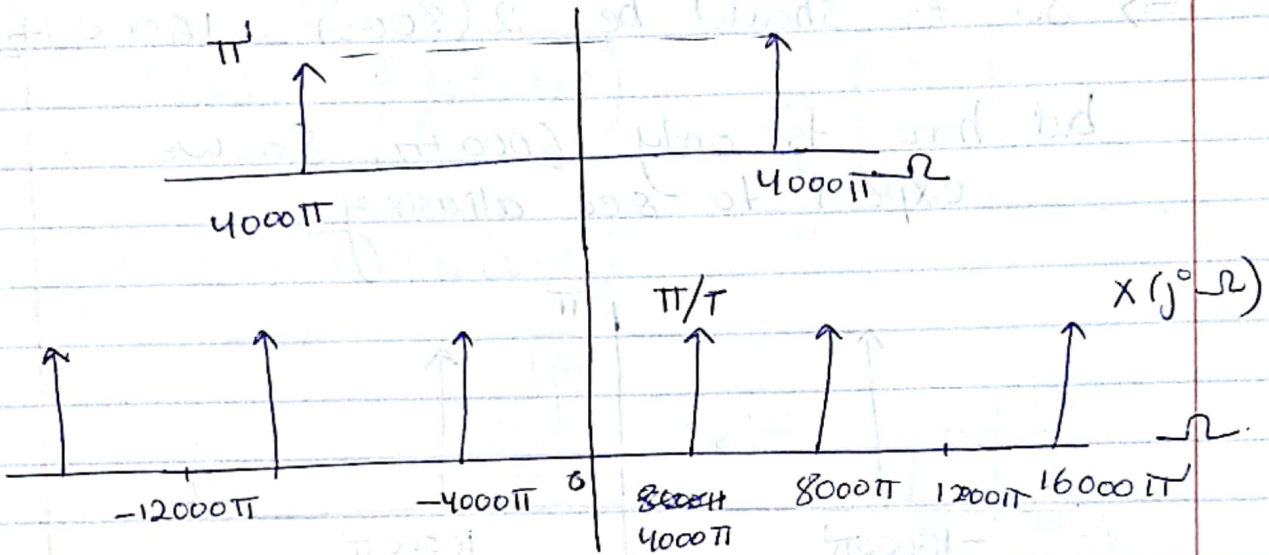 π
4000π
4000π Ω
π/T
X(jΩ)
Ω
-12000π
-4000π
0
8000π
12000π
16000π
4000π